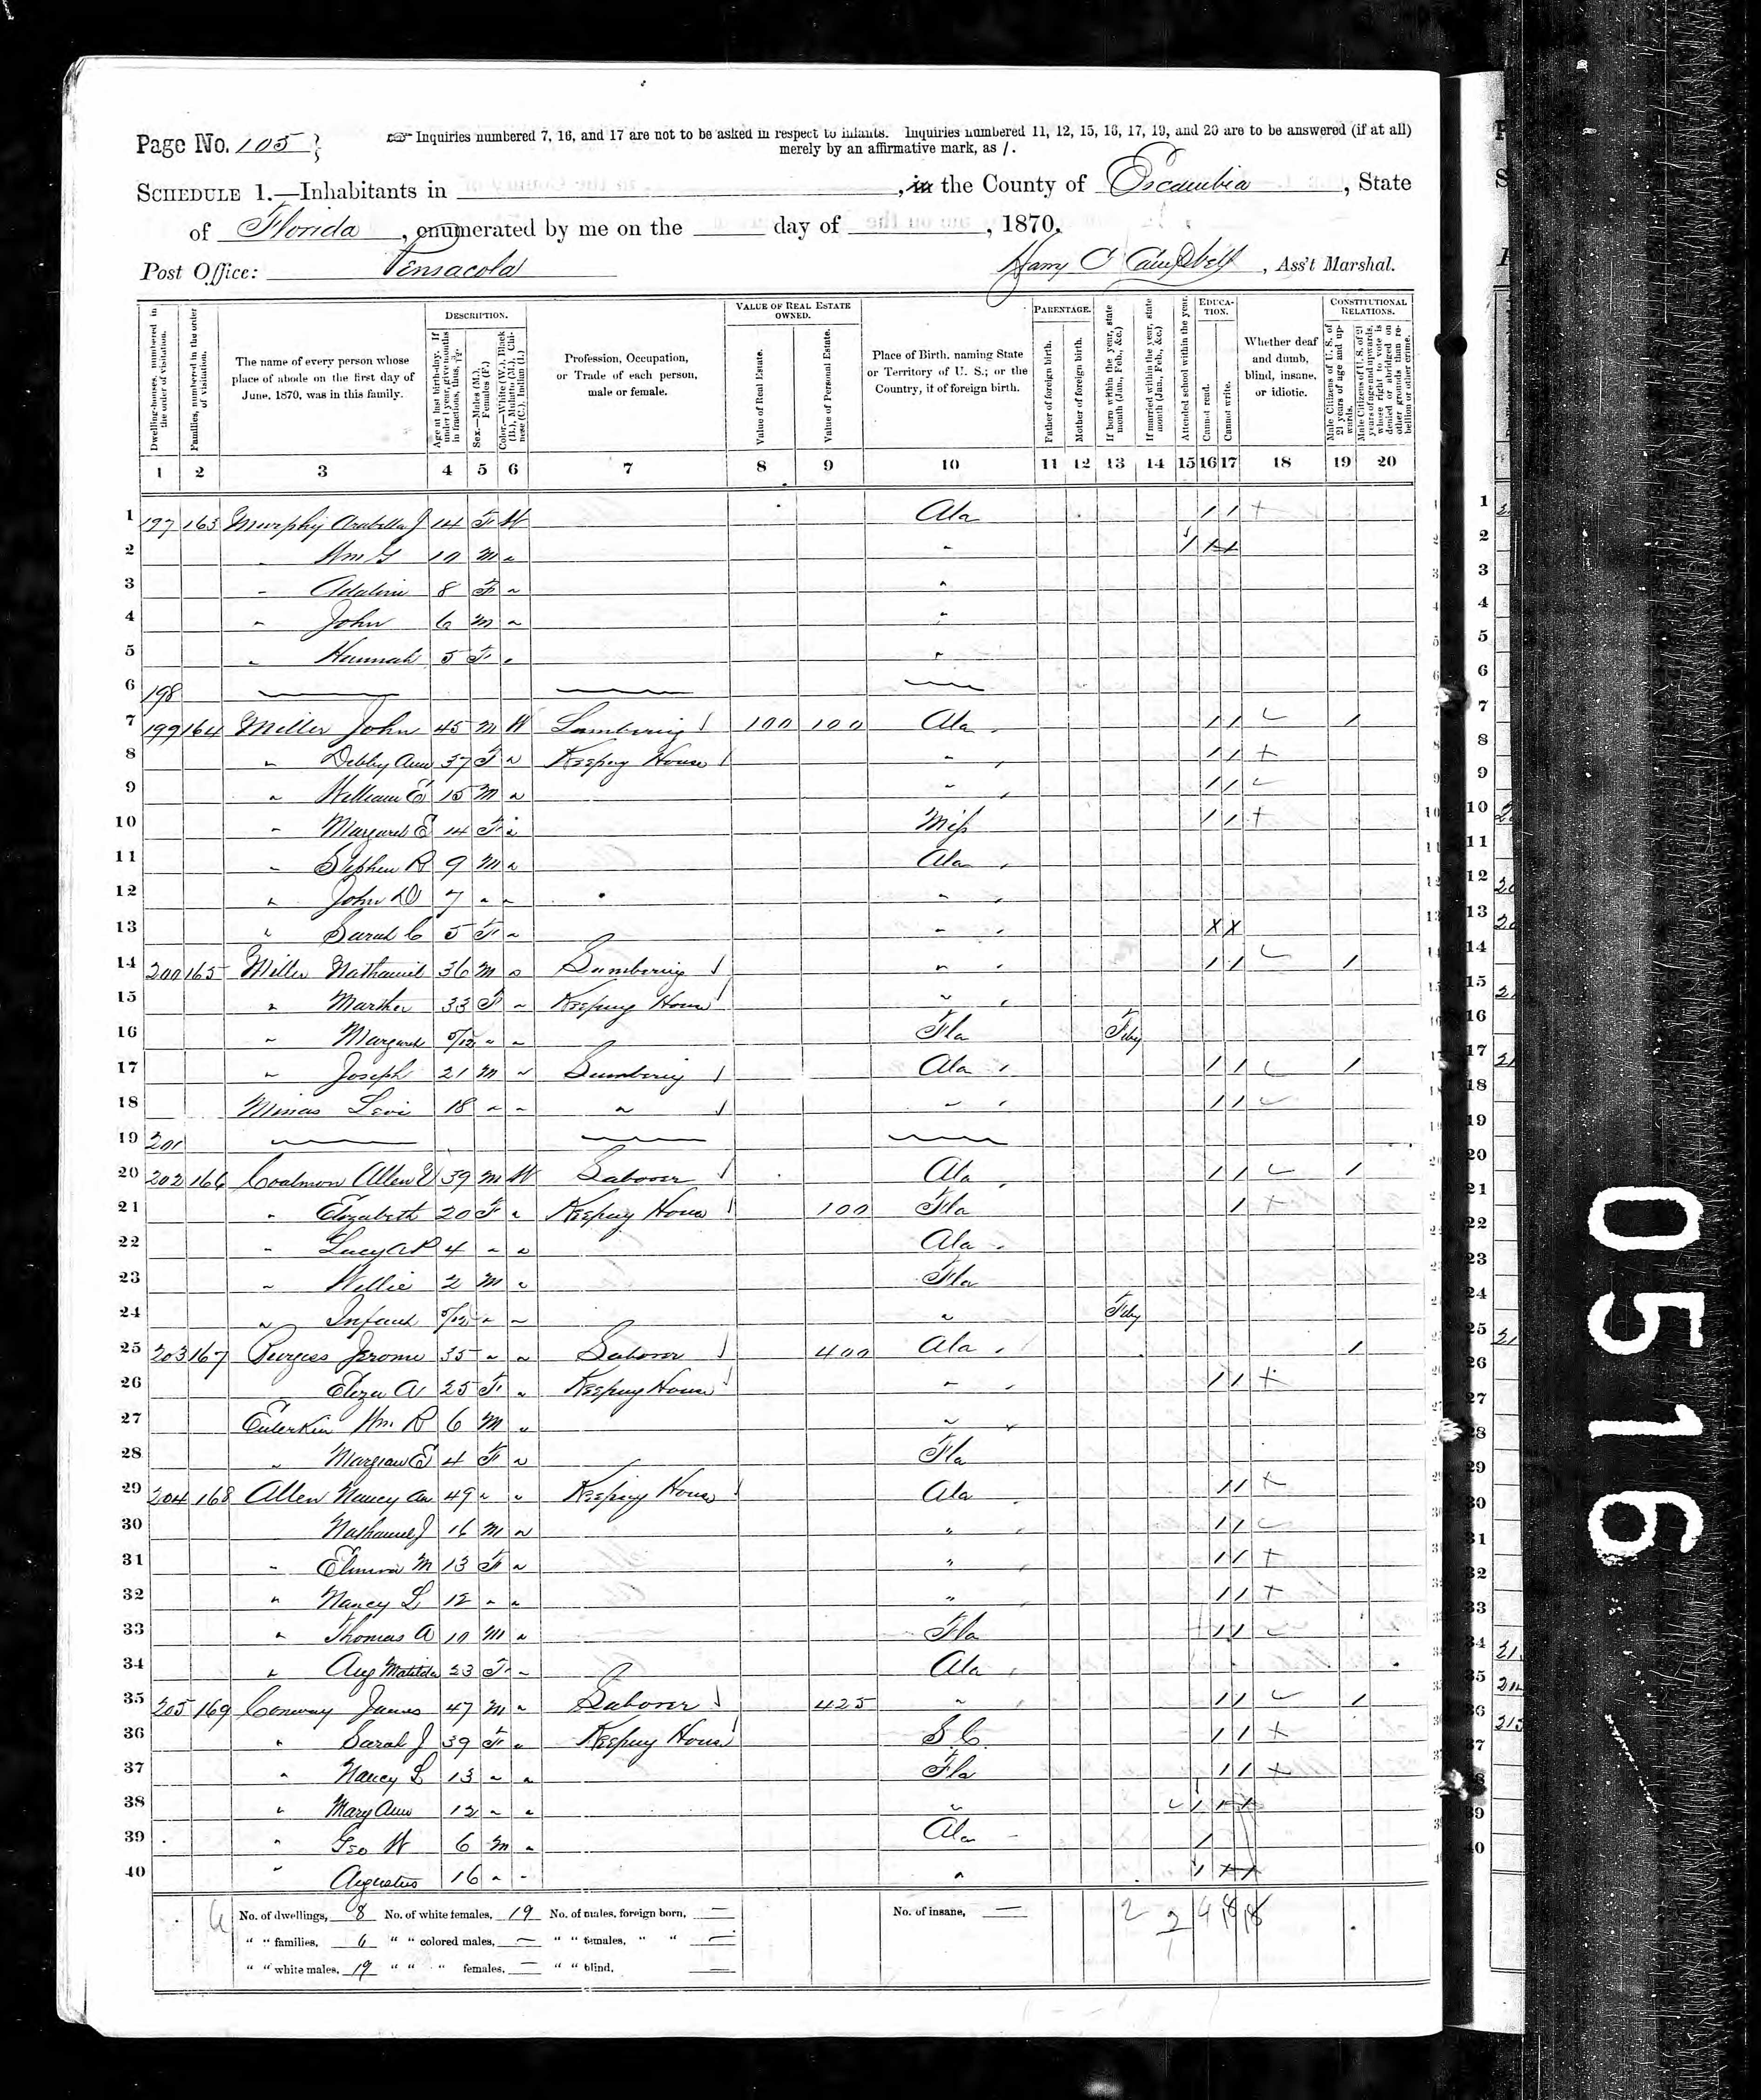 Page No. 105
Inquiries numbered 7, 16, and 17 are not to be asked in respect to infants. Inquiries numbered 11, 12, 15, 16, 17, 19, and 20 are to be answered (if at all)
merely by an affirmative mark, as /.
SCHEDULE 1.—Inhabitants in , in the County of Escambia, State
of Florida, enumerated by me on the day of , 1870.
Post Office: Pensacola Harry C Campbell, Ass't Marshal.
Dwelling-houses, numbered in the order of visitation.
Families, numbered in the order of visitation.
The name of every person whose place of abode on the first day of June, 1870, was in this family.
DESCRIPTION.
Age at last birth-day. If under 1 year, give months in fractions, thus, 3/12.
Sex.—Males (M.), Females (F.)
Color.—White (W.), Black (B.), Mulatto (M.), Chinese (C.), Indian (I.)
Profession, Occupation, or Trade of each person, male or female.
VALUE OF REAL ESTATE OWNED.
Value of Real Estate.
Value of Personal Estate.
Place of Birth, naming State or Territory of U. S.; or the Country, if of foreign birth.
PARENTAGE.
Father of foreign birth.
Mother of foreign birth.
If born within the year, state month (Jan., Feb., &c.)
If married within the year, state month (Jan., Feb., &c.)
EDUCATION.
Attended school within the year.
Cannot read.
Cannot write.
Whether deaf and dumb, blind, insane, or idiotic.
CONSTITUTIONAL RELATIONS.
Male Citizens of U. S. of 21 years of age and upwards.
Male Citizens of U. S. of 21 years of age and upwards, whose right to vote is denied or abridged on other grounds than rebellion or other crime.
1 2 3 4 5 6 7 8 9 10 11 12 13 14 15 16 17 18 19 20
1 197 163 Murphy Arabella J 14 F W Ala / / +
2 " Wm G 10 M " " /
3 " Adaline 8 F " "
4 " John 6 M " "
5 " Hannah 5 F " "
6 198
7 199 164 Miller John 45 M W Lumbering 100 100 Ala / / /
8 " Debby Ann 37 F " Keeping House " / / +
9 " William E 15 M " " / /
10 " Margaret E 14 F " Miss / / +
11 " Stephen R 9 M " Ala
12 " John D 7 " " "
13 " Sarah C 5 F " " X X
14 200 165 Miller Nathaniel 36 M " Lumbering " / / /
15 " Marsha 33 F " Keeping House "
16 " Margaret 5/12 " " Fla Feby
17 " Joseph 21 M " Lumbering Ala / / /
18 Levi 18 " " " " / /
19 201
20 202 166 Coalmon Allen 39 M W Laborer Ala / / /
21 " Elizabeth 20 F " Keeping House 100 Fla / +
22 " Lucy A R 4 " " Ala
23 " Willie 2 M " Fla
24 " Infant 5/12 " " " Feby
25 203 167 Burgess Jerome 35 " " Laborer 400 Ala /
26 Eliza A 25 F " Keeping House " / / +
27 Wm. R 6 M " "
28 " E 4 F " Fla
29 204 168 Allen Nancy An 49 " " Keeping House Ala / / +
30 Nathaniel J 16 M " " / /
31 " M 13 F " " / / +
32 " Nancy L 12 " " " / / +
33 " Thomas A 10 M " Fla / /
34 " Matilda 23 F " Ala
35 205 169 Conway James 47 M " Laborer 425 " / / /
36 " Sarah J 39 F " Keeping House S. C. / / +
37 " Nancy L 13 " " Fla / / +
38 " Mary Ann 12 " " " /
39 " Geo W 6 M " Ala /
40 " Augustus 16 " " " /
No. of dwellings, 8 No. of white females, 19 No. of males, foreign born, — No. of insane, —
" " families, 6 " " colored males, — " " females, " " —
" " white males, 19 " " " females, — " " blind, —
0516